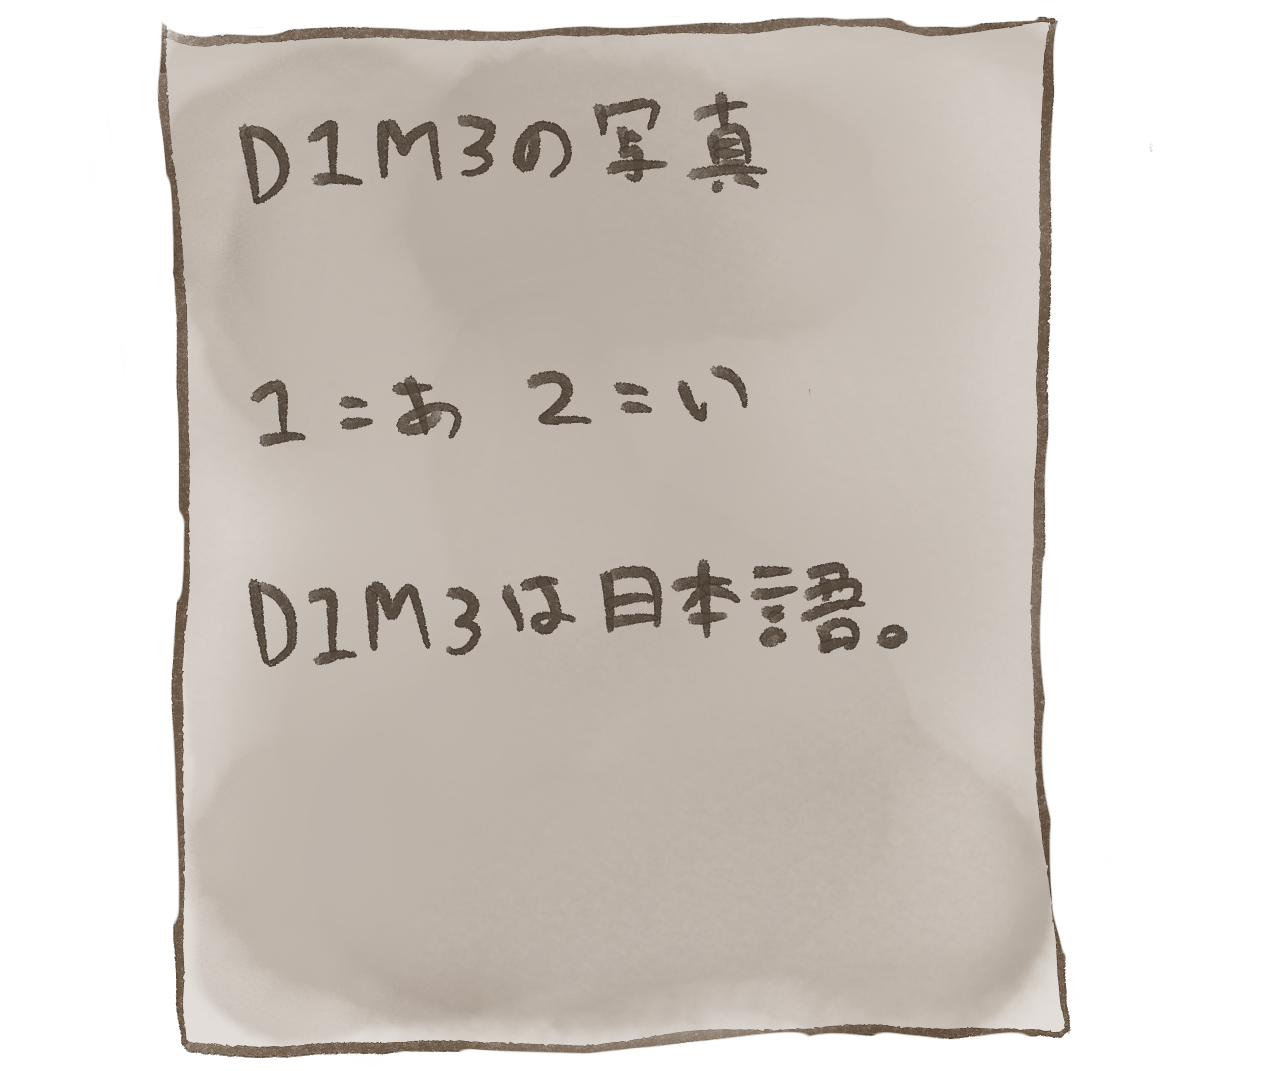 D1M3の写真
1=あ 2=い
D1M3は日本語。